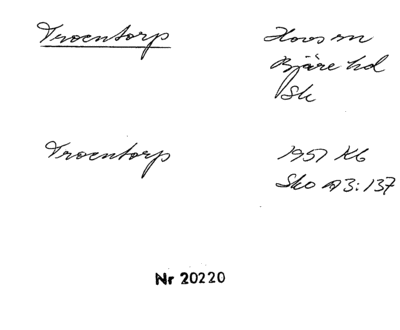 Troentorp
Hovs sn
Bjäre hd
Sk
Troentorp
1957 Kb
Sko A3:137
Nr 20220